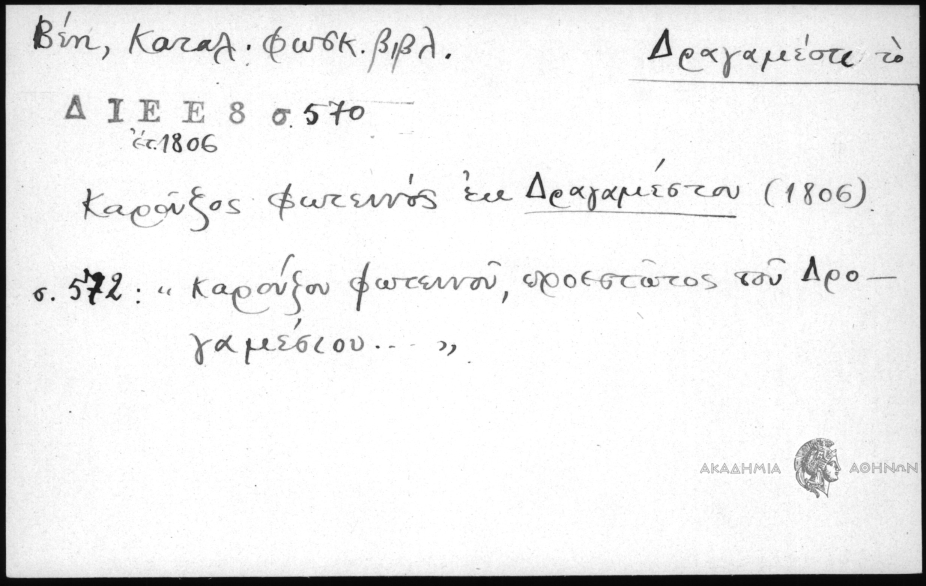 Βέη, Καταλ. φωσκ. βιβλ.
Δραγαμέστε τὸ
Δ Ι Ε Ε 8 σ. 570
ἔτ. 1806
Καροῦζος Φωτεινός ἐκ Δραγαμέστου (1806)
σ. 572: " Καρούζου Φωτεινοῦ, προεστῶτος τοῦ Δρο—
γαμέστου... "
ΑΚΑΔΗΜΙΑ ΑΘΗΝΩΝ